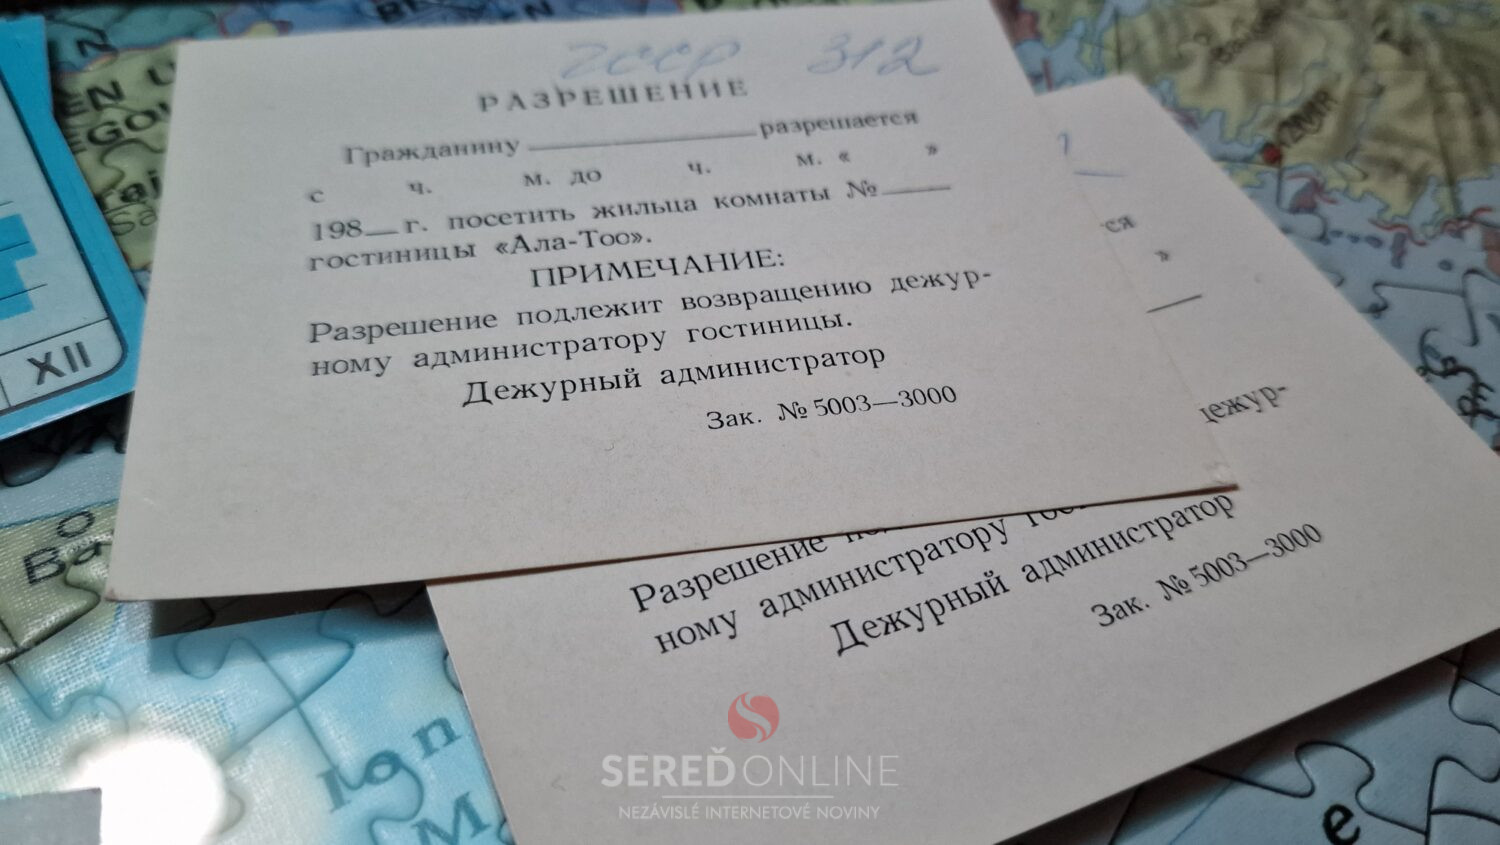 ЧССР 312
РАЗРЕШЕНИЕ
Гражданину разрешается
с ч. м. до ч. м. « »
198 г. посетить жильца комнаты №
гостиницы «Ала-Тоо».
ПРИМЕЧАНИЕ:
Разрешение подлежит возвращению дежур-
ному администратору гостиницы.
Дежурный администратор
Зак. № 5003—3000
ся
»
дежур-
Разрешение
ному администратору
Дежурный администратор
Зак. № 5003—3000
XII
IZMIR
Ion
M
e
SEREĎONLINE
NEZÁVISLÉ INTERNETOVÉ NOVINY